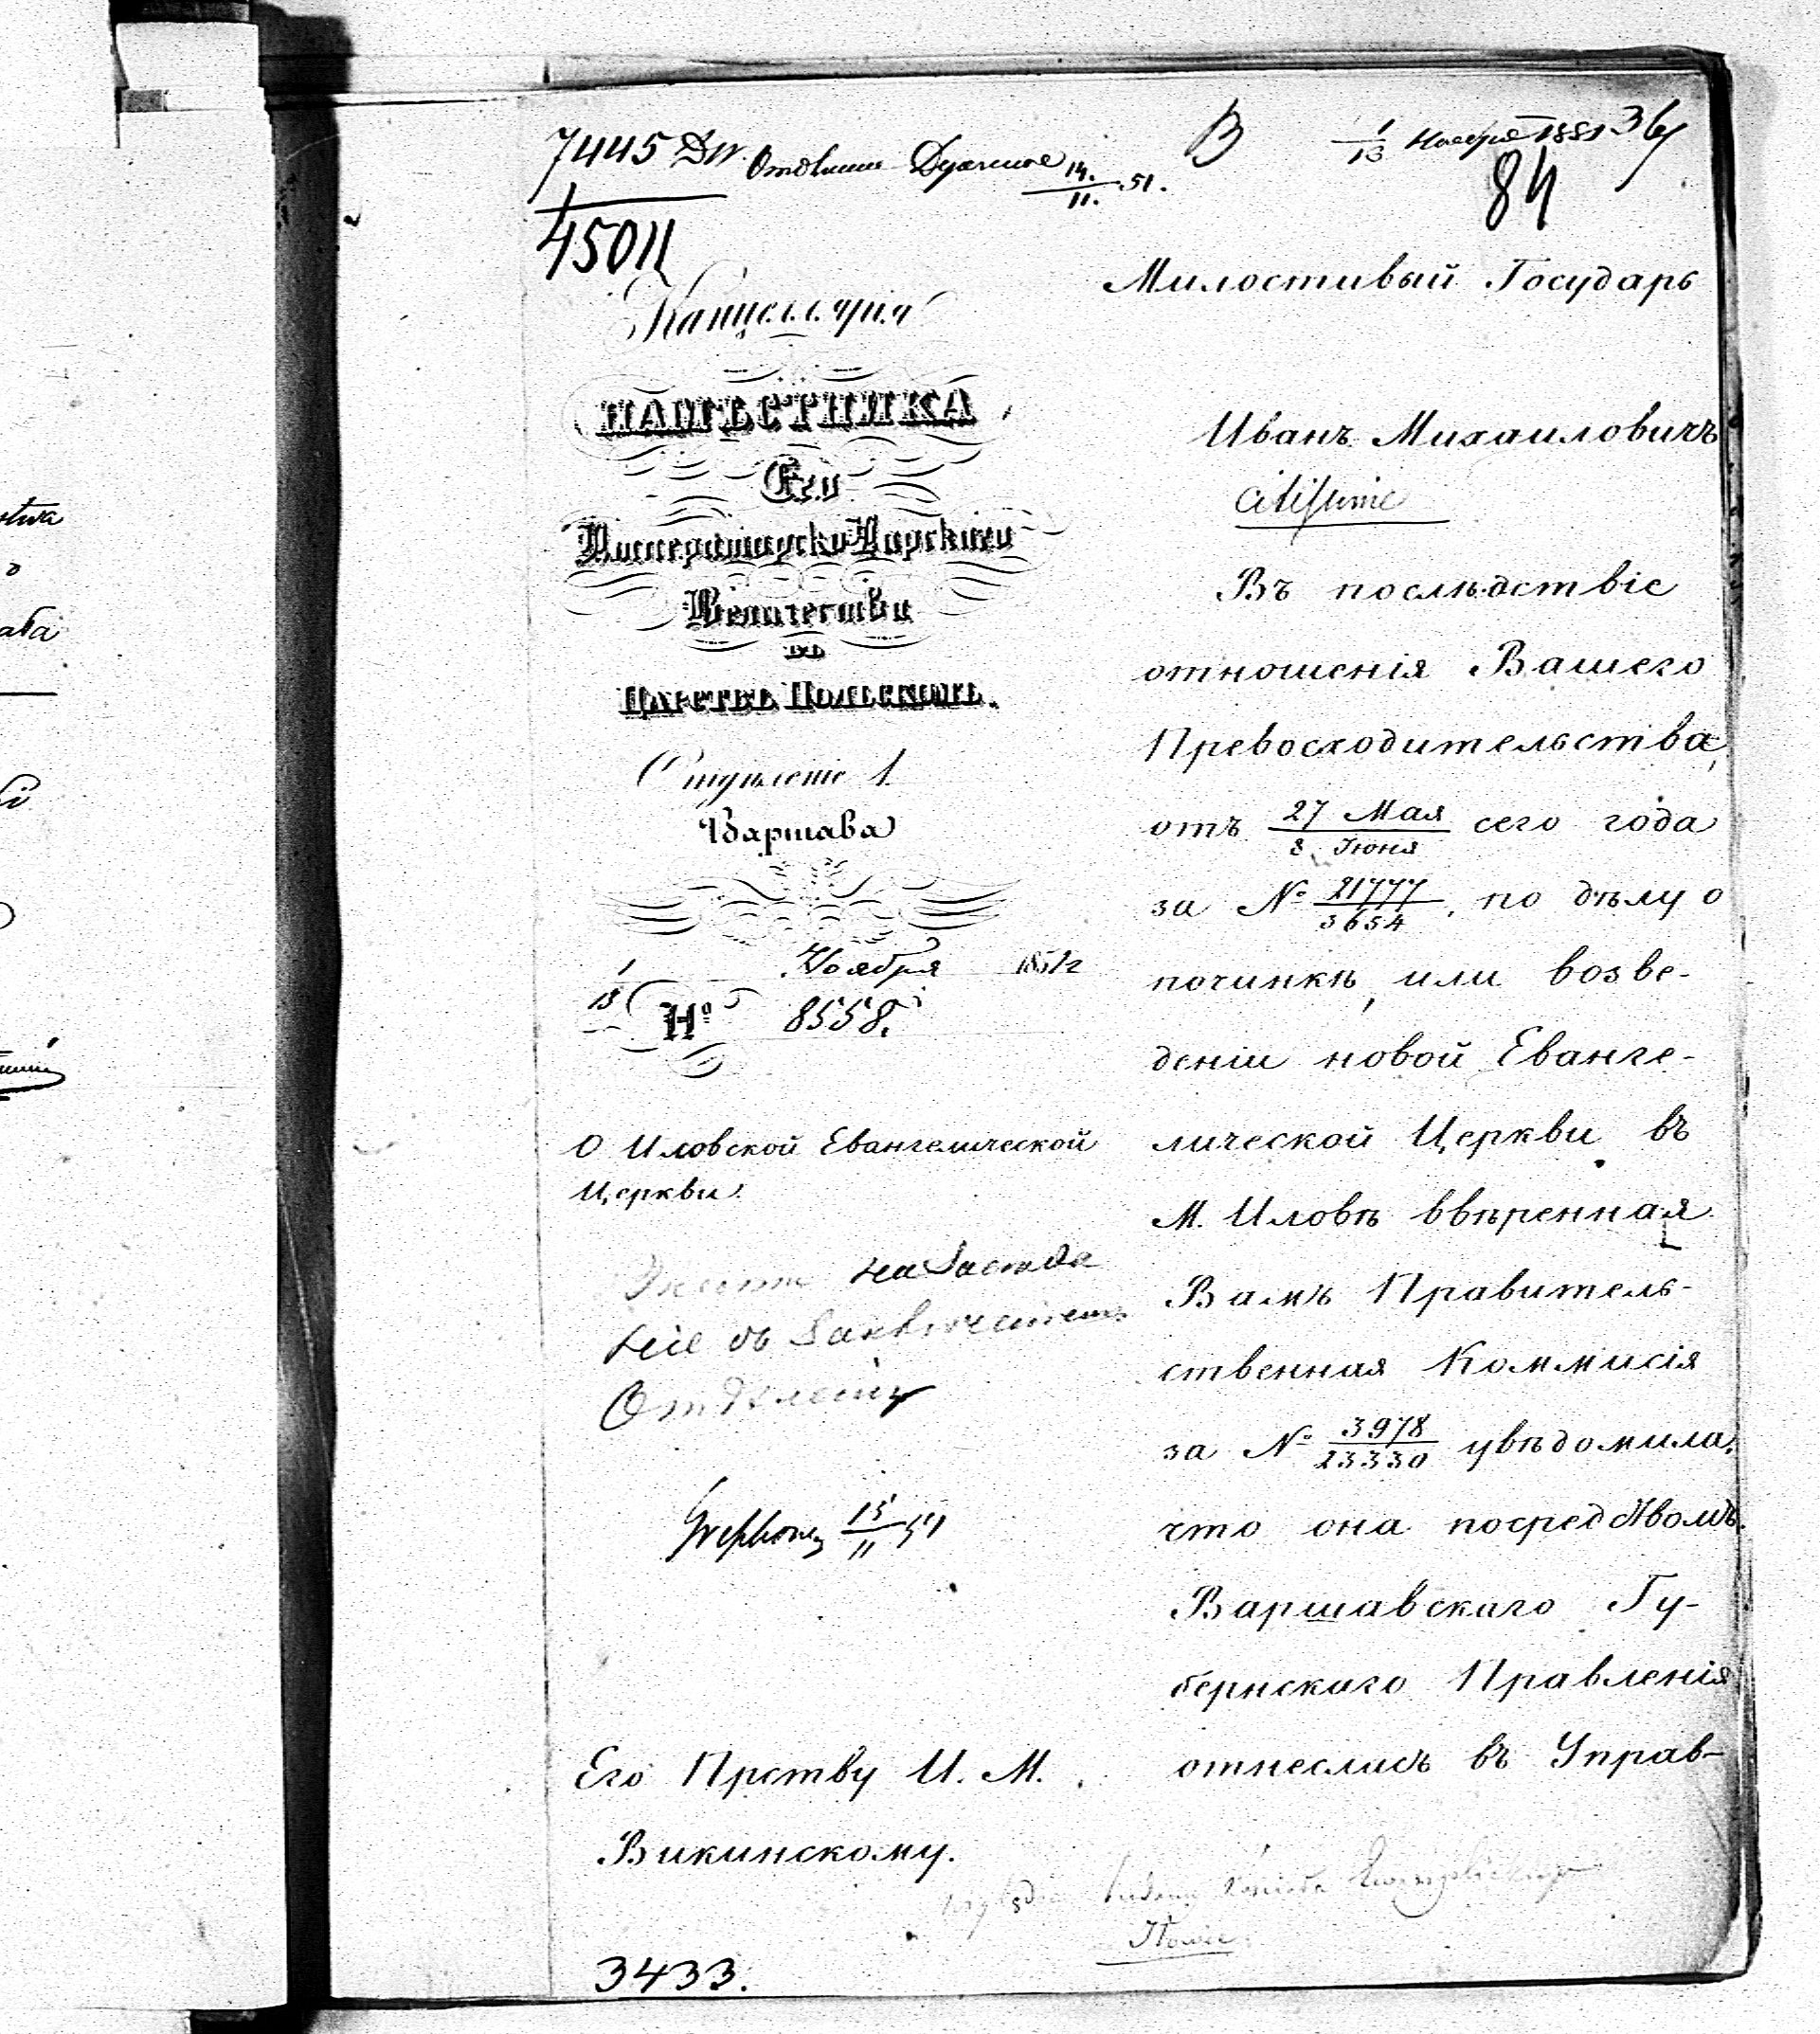 7445 DW.
4501
Отдѣленіе Духовное 14./11. 51.
В
1/13 Ноября 1851
84
Канцелярія
НАМѢСТНИКА
Его
Императорско-Царскаго
Величества
въ
Царствѣ Польскомъ.
Отдѣленіе 1.
Варшава
1/13 Ноября 1851 г
№ 8558.
О Иловской Евангелической
Церкви.
Отдѣленію
15/11 51
Его Прству И. М.
Викинскому.
3433.
Милостивый Государь
Иванъ Михаиловичъ
Въ послѣдствіе
отношенія Вашего
Превосходительства,
отъ 27 Мая/8 Іюня сего года
за № 21777/3654, по дѣлу о
починкѣ, или возве-
деніи новой Еванге-
лической Церкви въ
М. Иловѣ ввѣренная
Вамъ Правитель-
ственная Коммисія
за № 3978/23330 увѣдомила,
что она посредствомъ
Варшавскаго Гу-
бернскаго Правленія
отнеслась въ Управ-